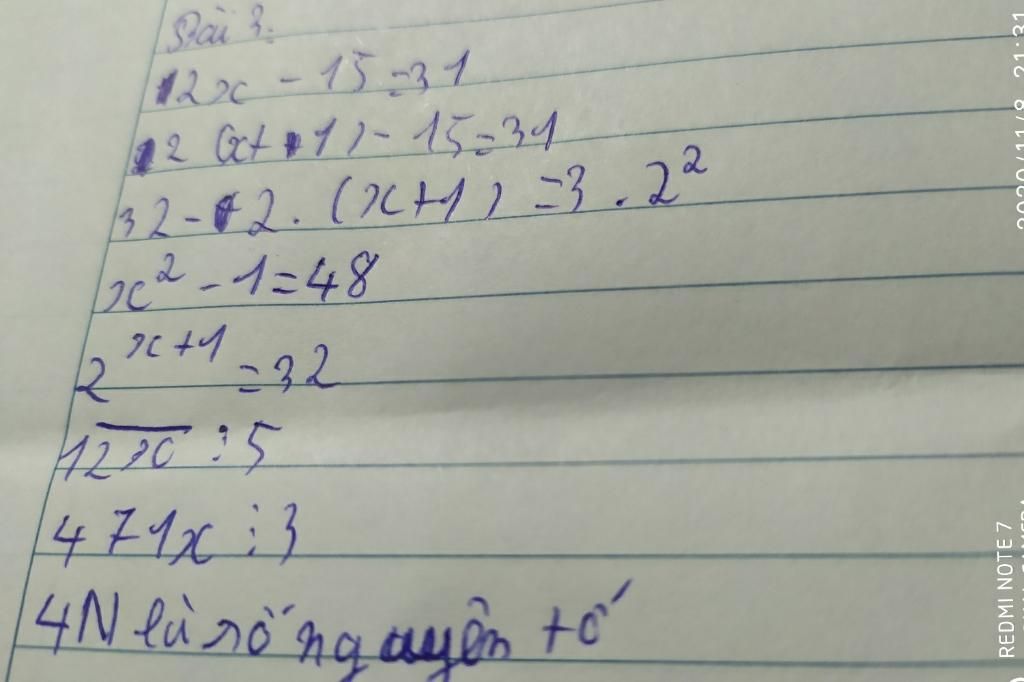 Bài 3:
2x - 15 = 31
2 (x + 1) - 15 = 31
32 - 2 . (x + 1) = 3 . 2²
x² - 1 = 48
2^{x+1} = 32
\overline{12x} ⋮ 5
471x ⋮ 3
4N là số nguyên tố
2020/11/8 21:31
REDMI NOTE 7